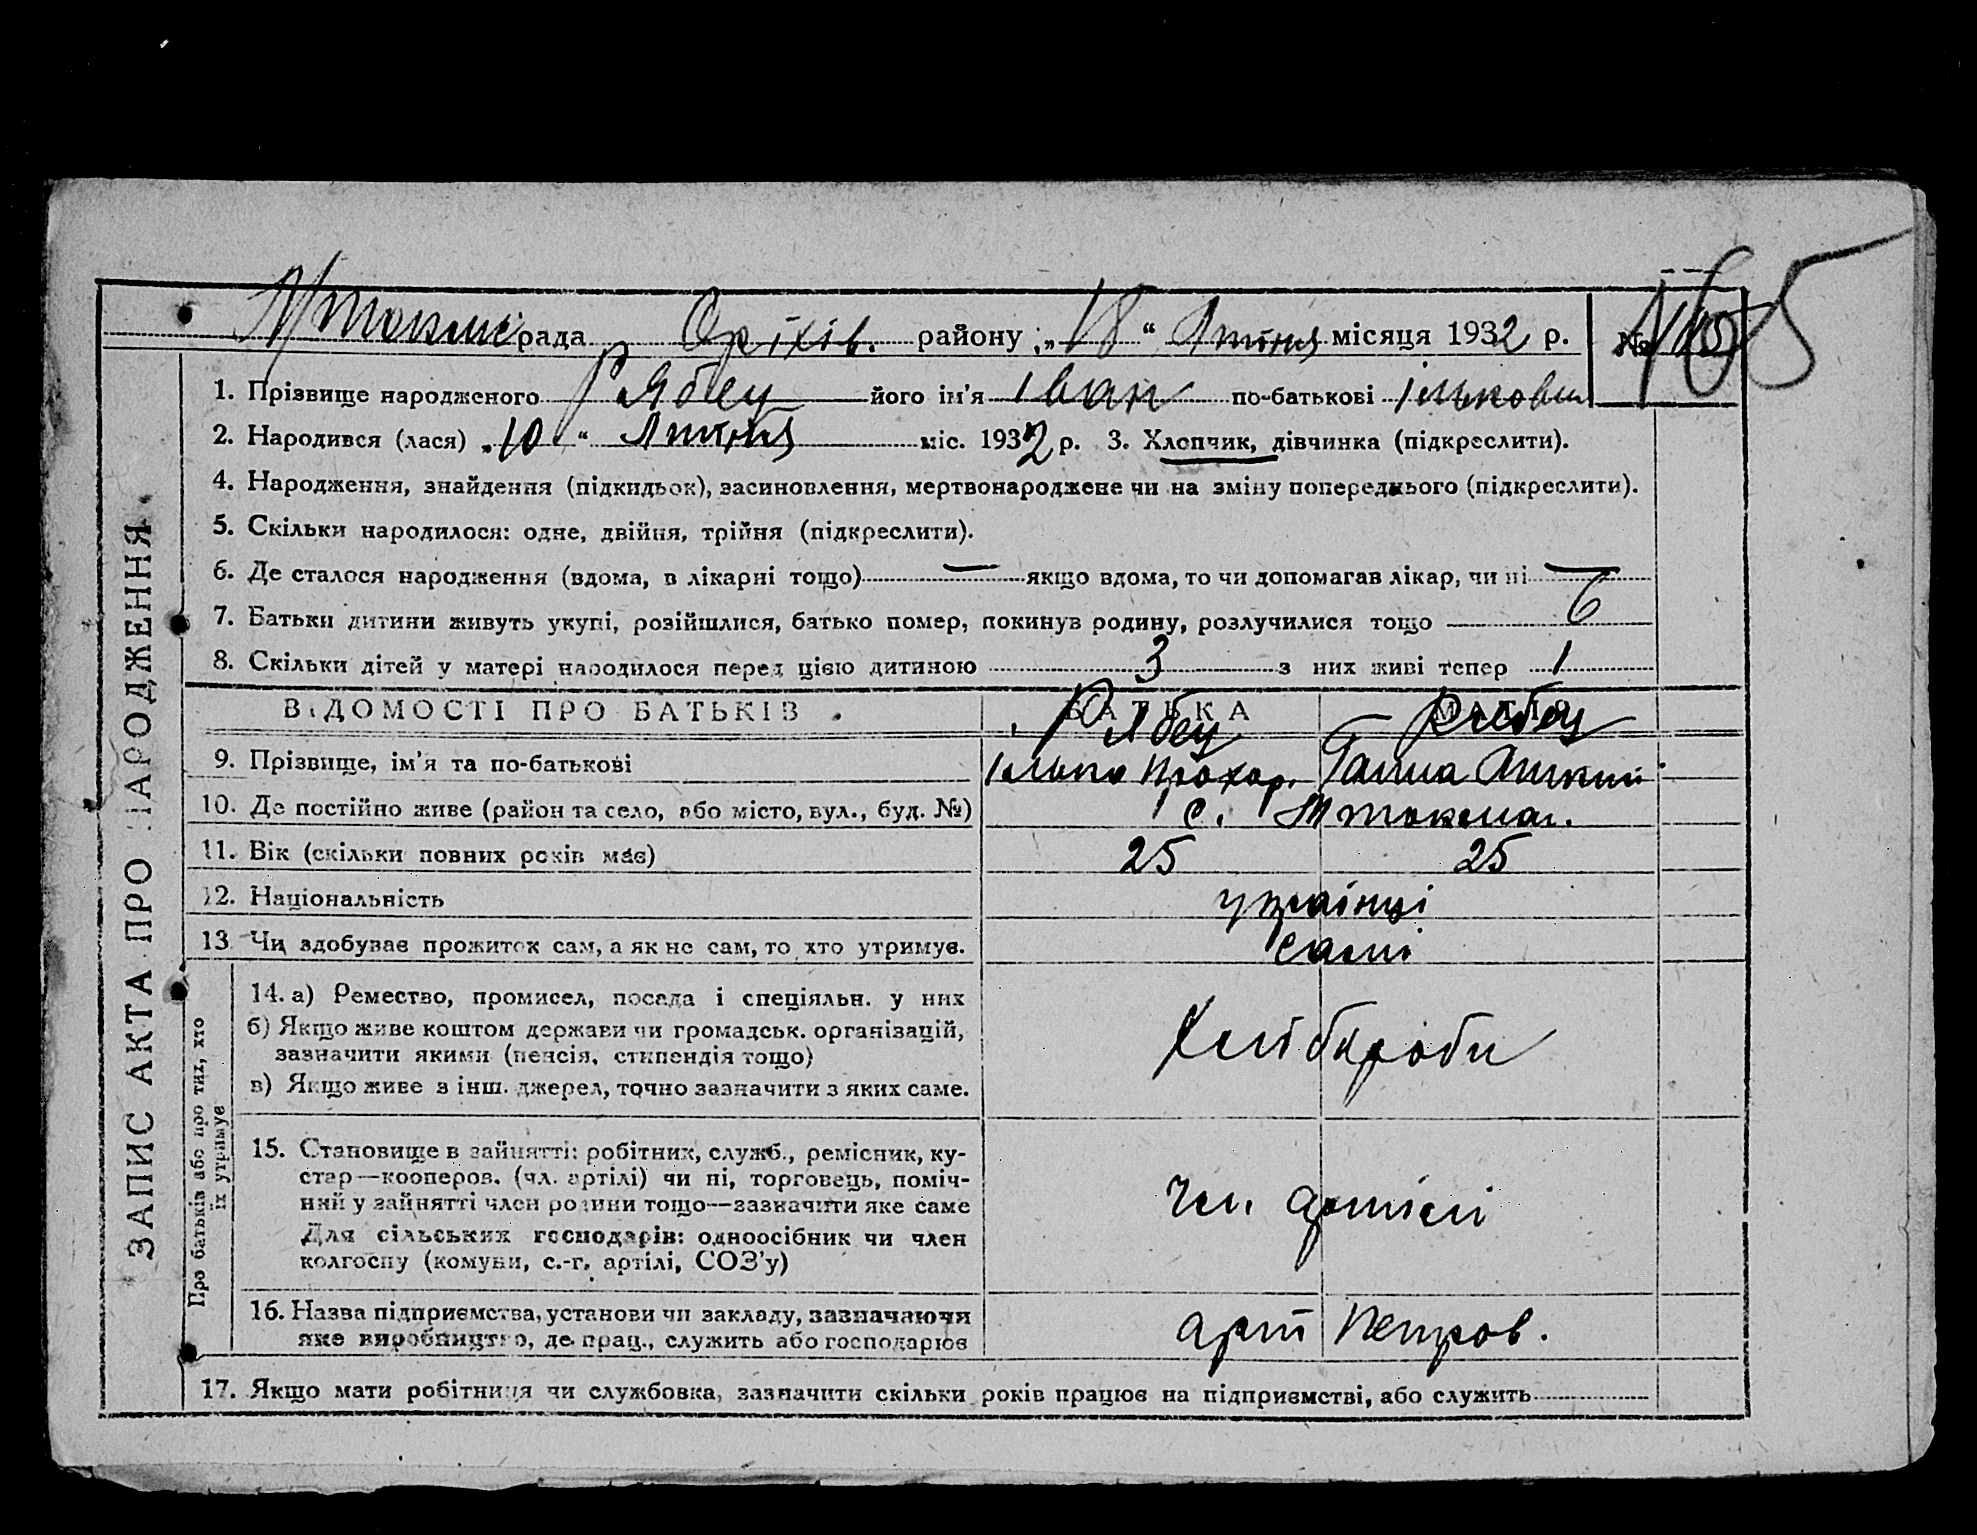 М/Токмач рада Оріхів. району „18“ Липня місяця 1932 р. № 165
1. Прізвище народженого Рябец його ім'я Іван по-батькові Ількович
2. Народився (лася) „10“ Липня міс. 1932 р. 3. Хлопчик, дівчинка (підкреслити).
4. Народження, знайдення (підкидьок), засиновлення, мертвонароджене чи на зміну попереднього (підкреслити).
5. Скільки народилося: одне, двійня, трійня (підкреслити).
6. Де сталося народження (вдома, в лікарні тощо) — якщо вдома, то чи допомагав лікар, чи ні —
7. Батьки дитини живуть укупі, розійшлися, батько помер, покинув родину, розлучилися тощо
8. Скільки дітей у матері народилося перед цією дитиною 3 з них живі тепер 1
ВІДОМОСТІ ПРО БАТЬКІВ БАТЬКА МАТЕРІ
Рябец Рябец
9. Прізвище, ім'я та по-батькові Ілько Прохор. Ганна
10. Де постійно живе (район та село, або місто, вул., буд. №) с. М Токмач.
11. Вік (скільки повних років має) 25 25
12. Національність українці
13. Чи здобуває прожиток сам, а як не сам, то хто утримує. Самі
14. а) Ремество, промисел, посада і спеціяльн. у них
б) Якщо живе коштом держави чи громадськ. організацій,
зазначити якими (пенсія, стипендія тощо)
в) Якщо живе з інш. джерел, точно зазначити з яких саме.
Хлібороби
15. Становище в зайнятті: робітник, служб., ремісник, ку-
стар—кооперов. (чл. артілі) чи ні, торговець, поміч-
ний у зайнятті член родини тощо—зазначити яке саме
Для сільських господарів: одноосібник чи член
колгоспу (комуни, с.-г. артілі, СОЗ'у)
Чл. артілі
16. Назва підприємства, установи чи закладу, зазначаючи
яке виробництво, де прац., служить або господарює
арт Петров.
17. Якщо мати робітниця чи службовка, зазначити скільки років працює на підприємстві, або служить
ЗАПИС АКТА ПРО НАРОДЖЕННЯ
Про батьків або про тих, хто
їх утримує